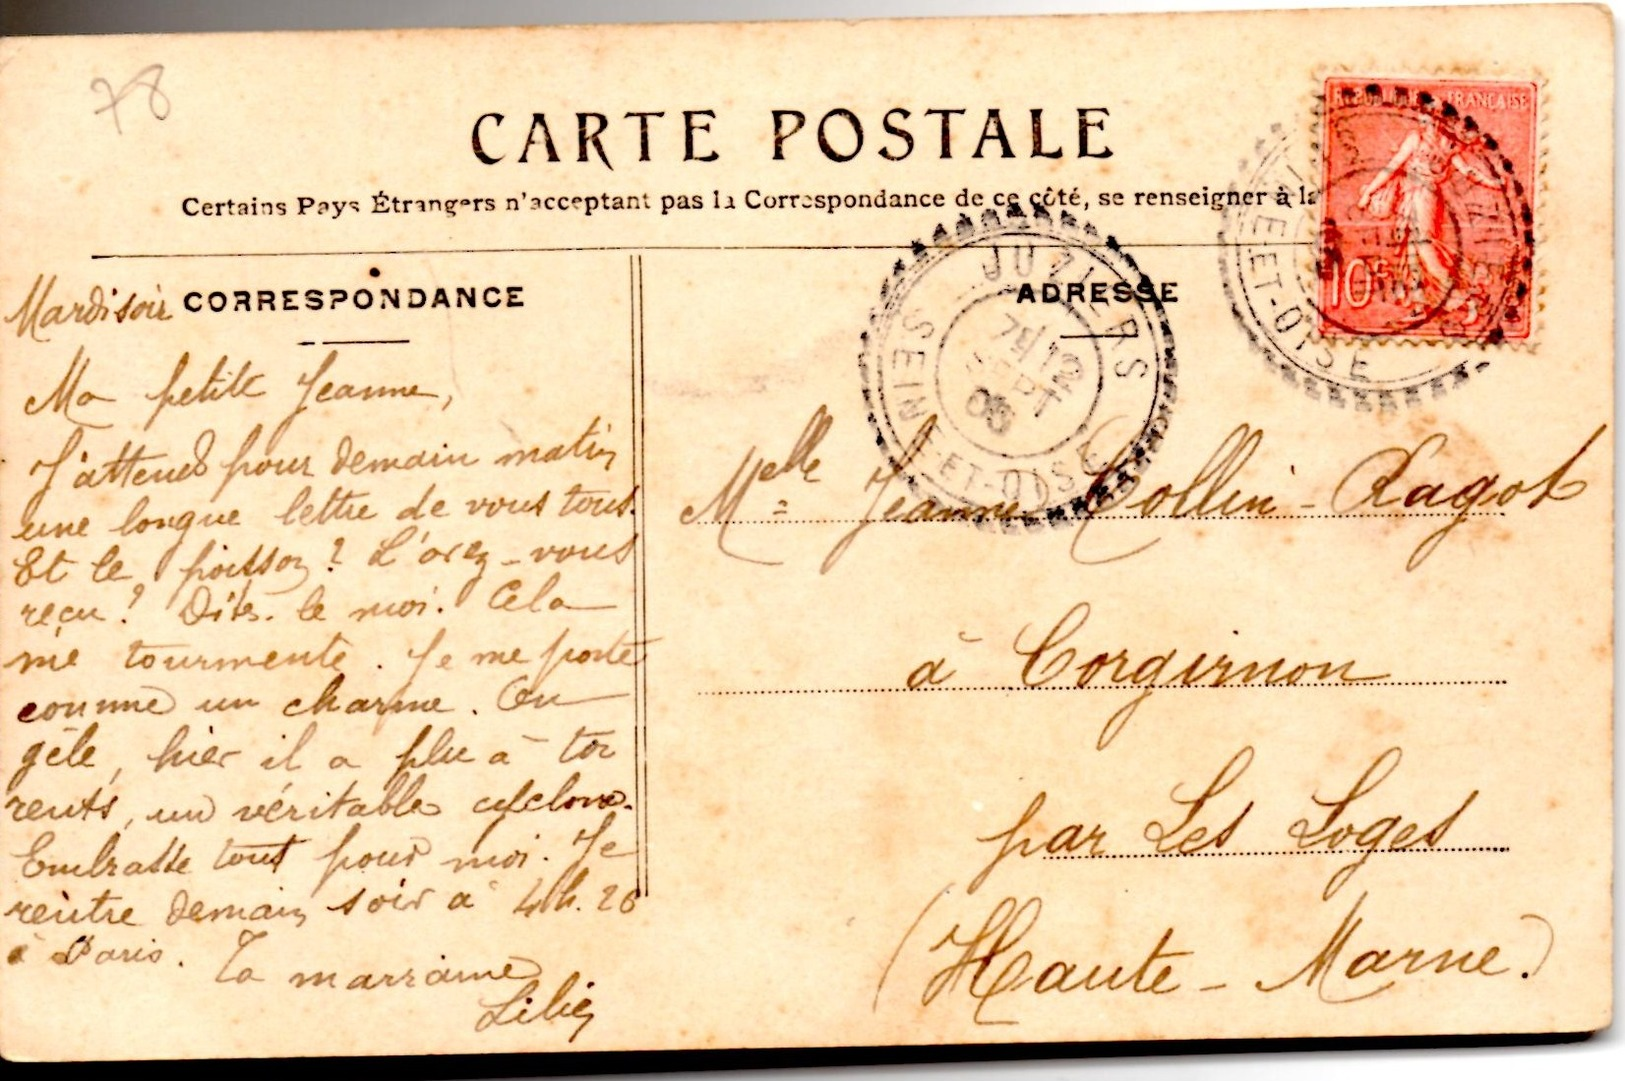 78
CARTE POSTALE
Certains Pays Étrangers n'acceptant pas la Correspondance de ce côté, se renseigner à la
RÉPUBLIQUE FRANÇAISE
10
JUZIERS
SEINE-ET-OISE
7E 12
SEPT
05
JUZIERS
SEINE-ET-OISE
CORRESPONDANCE
Mardi soir
Ma petite Jeanne,
J'attends pour demain matin
une longue lettre de vous tous.
Et le poisson? L'avez-vous
reçu? Dites-le moi. Cela
me tourmente. Je me porte
comme un charme. On
gèle, hier il a plu à tor
rents, un véritable cyclone.
Embrasse tout pour moi. Je
rentre demain soir à 4h.26
à Paris. Ta marraine
Lilie
ADRESSE
Melle Jeanne Collin-Ragot
à Corgirnon
par Les Loges
(Haute-Marne.)